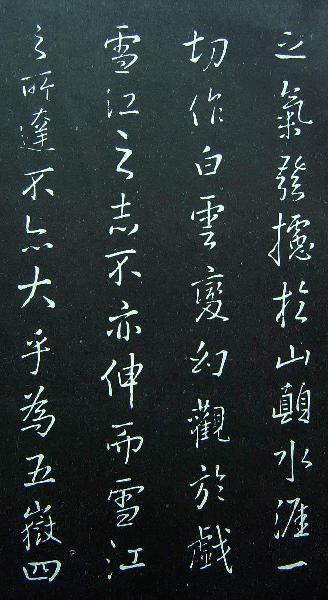 之氣發攄於山顛水涯一
切作白雲變幻觀於戲
雪江之志不亦伸而雪江
之所達不亦大乎為五嶽四